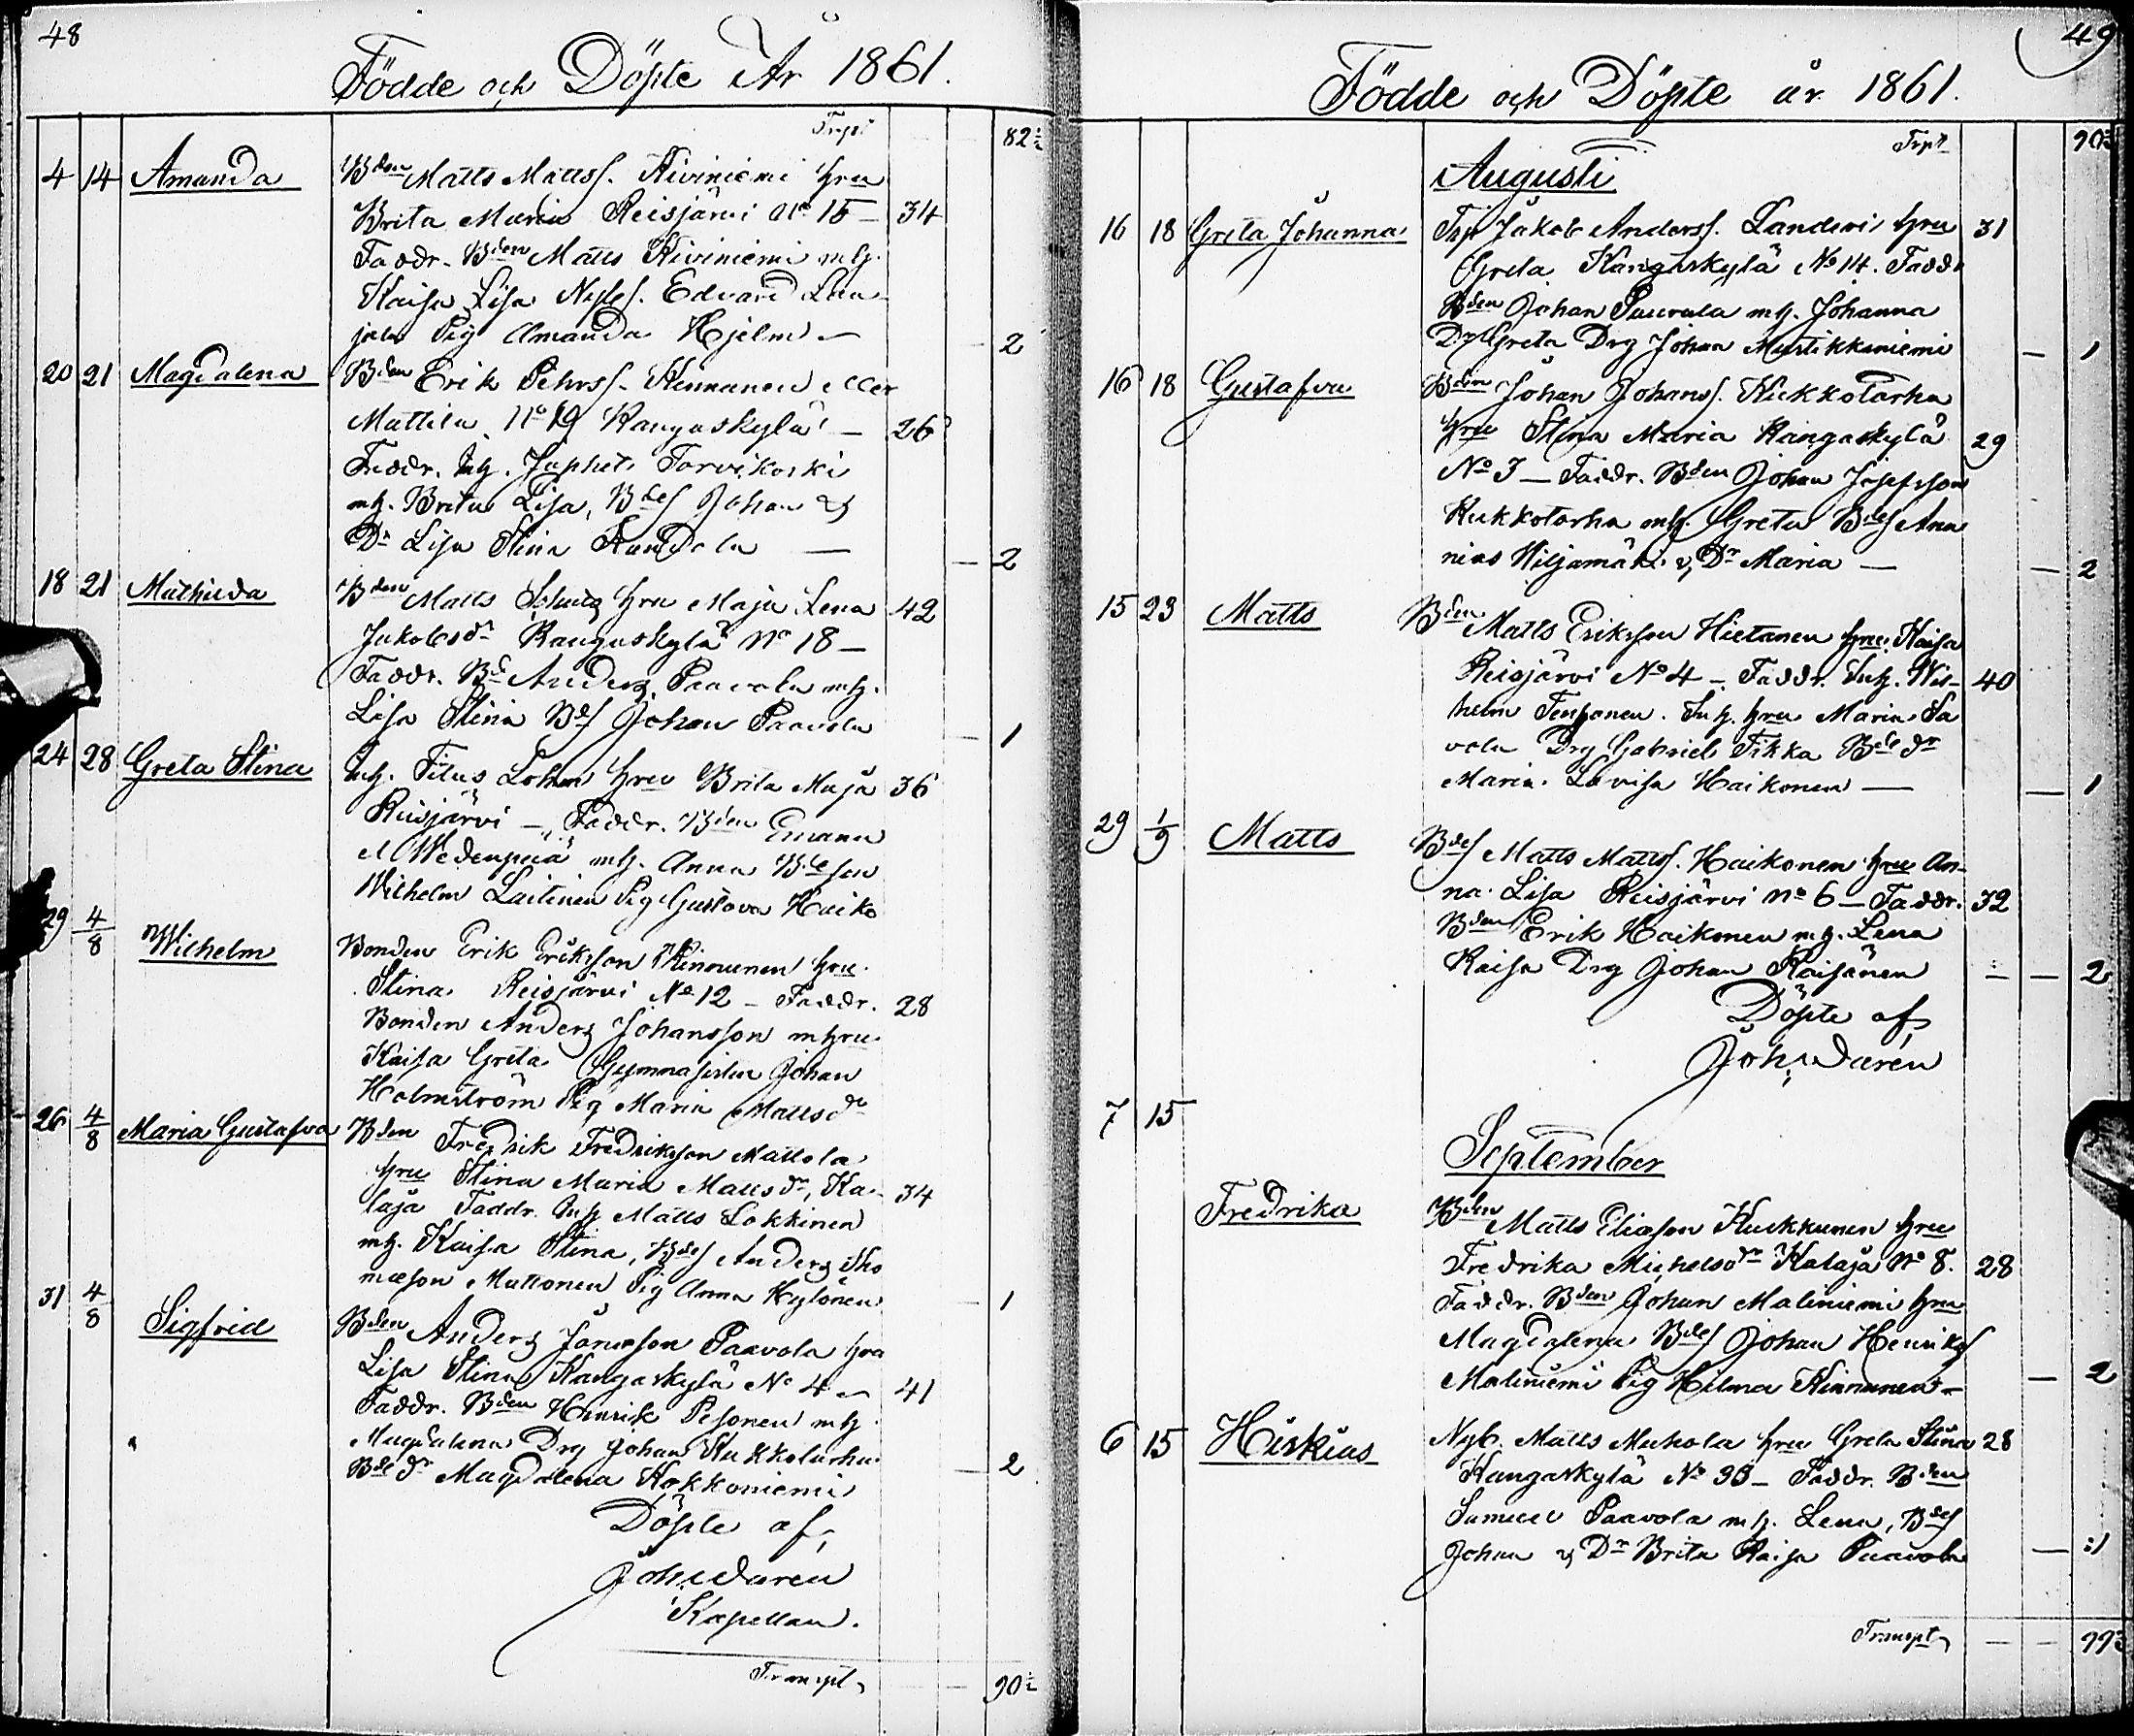 48
Födde och Döpte År 1861.
Trpt 82½
4 14 Amanda Bden Matts Mattss. Kiviniemi hru
Brita Maria Reisjärvi No 15 — 34
Faddr. Bden Matts Kiviniemi mh.
Kaisa Lisa Nybs. Edvard Lau-
jala Pig Amanda Hjelm — 2
20 21 Magdalena Bden Erik Pehrss. Kinnunen eller
Mattila No 19 Kangaskylä — 26
Faddr. Inh. Japhet Torvikoski
mh. Brita Lisa, Bdes Johan &
Dr Lisa Stina — 2
18 21 Mathilda Bden Matts hru Maja Lena 42
Jakobsdr Kangaskylä No 18 —
Faddr. Bd Anders Paavola mh.
Lisa Stina Bds Johan Paavola — 1
24 28 Greta Stina Inh. Titus hru Brita Maja 36
Reisjärvi — Faddr. Bden Emanu
el Wedenpää mh. Anna Bdeson
Wilhelm Laitinen Pig Gustava Haiko
29 4/8 Wilhelm Bonden Erik Eriksson Kinnunen hru
Stina Reisjärvi No 12 — Faddr. 28
Bonden Anders Johansson m hru
Kaisa Greta Gymnasisten Johan
Holmström Pig Maria Mattsdr
26 4/8 Maria Gustafva Bden Fredrik Fredriksson Mattola
hru Stina Maria Mattsdr, Ka- 34
laja Faddr. Inh Matts Lokkinen
mh. Kaisa Stina, Bdes Anders Tho
masson Muttonen Pig Anna Hylönen — 1
31 4/8 Sigfrid Bden Anders Paavola hru
Lisa Stina Kangaskylä No 4 — 41
Faddr. Bden Henrik Pesonen mh
Magdalena Drg Johan Kukkotarha
Bdedr Magdalena Kokkoniemi — 2
Döpte af,
Joh. Daren
Kapellan.
Transpt, — 90½
49
Födde och Döpte år 1861.
Trpt 90½
Augusti
16 18 Greta Johanna Trp Jakob Anderss. Landin hru 31
Greta Kangaskylä No 14. Faddr
Bden Johan Paavola mh. Johanna
Dr Greta Drg Johan Mustikkaniemi — 1
16 18 Gustafva Bden Johan Johanss. Kukkotarha
hru Stina Maria Kangaskylä 29
No 3 — Faddr. Bden Johan Josefsson
Kukkotarha mh. Greta Bdes Ana
nias Hiljamäki & Dr Maria — 2
15 23 Matts Bden Matts Eriksson Hietanen hru Kaisa
Reisjärvi No 4 — Faddr. Inh. Wil- 40
helm Tenhonen. Inh. hru Maria Sa
vola Drg Gabriel Tikka Bdedr
Maria Lovisa Haikonen — 1
29 1/9 Matts Bdes Matts Mattss. Haikonen hru An-
na Lisa Reisjärvi No 6 — Faddr. 32
Bden Erik Haikonen mh. Lena
Kaisa Drg Johan Räisänen — — 2
Döpte af
Joh. Daren
7 15
September
Fredrika Bden Matts Eliasson Kukkunen hru
Fredrika Michelsdr Kalaja No 8. 28
Faddr. Bden Johan Maliniemi hru
Magdalena Bdes Johan Henriks
Maliniemi Pig Hilma Kinnunen — 2
6 15 Hiskias Nyb. Matts Muhola hru Greta Stina 28
Kangaskylä No 33 — Faddr. Bden
Samuel Paavola mh. Lena, Bdes
Johan & Dr Brita Kaisa Paavola — 1
Transpt, — —